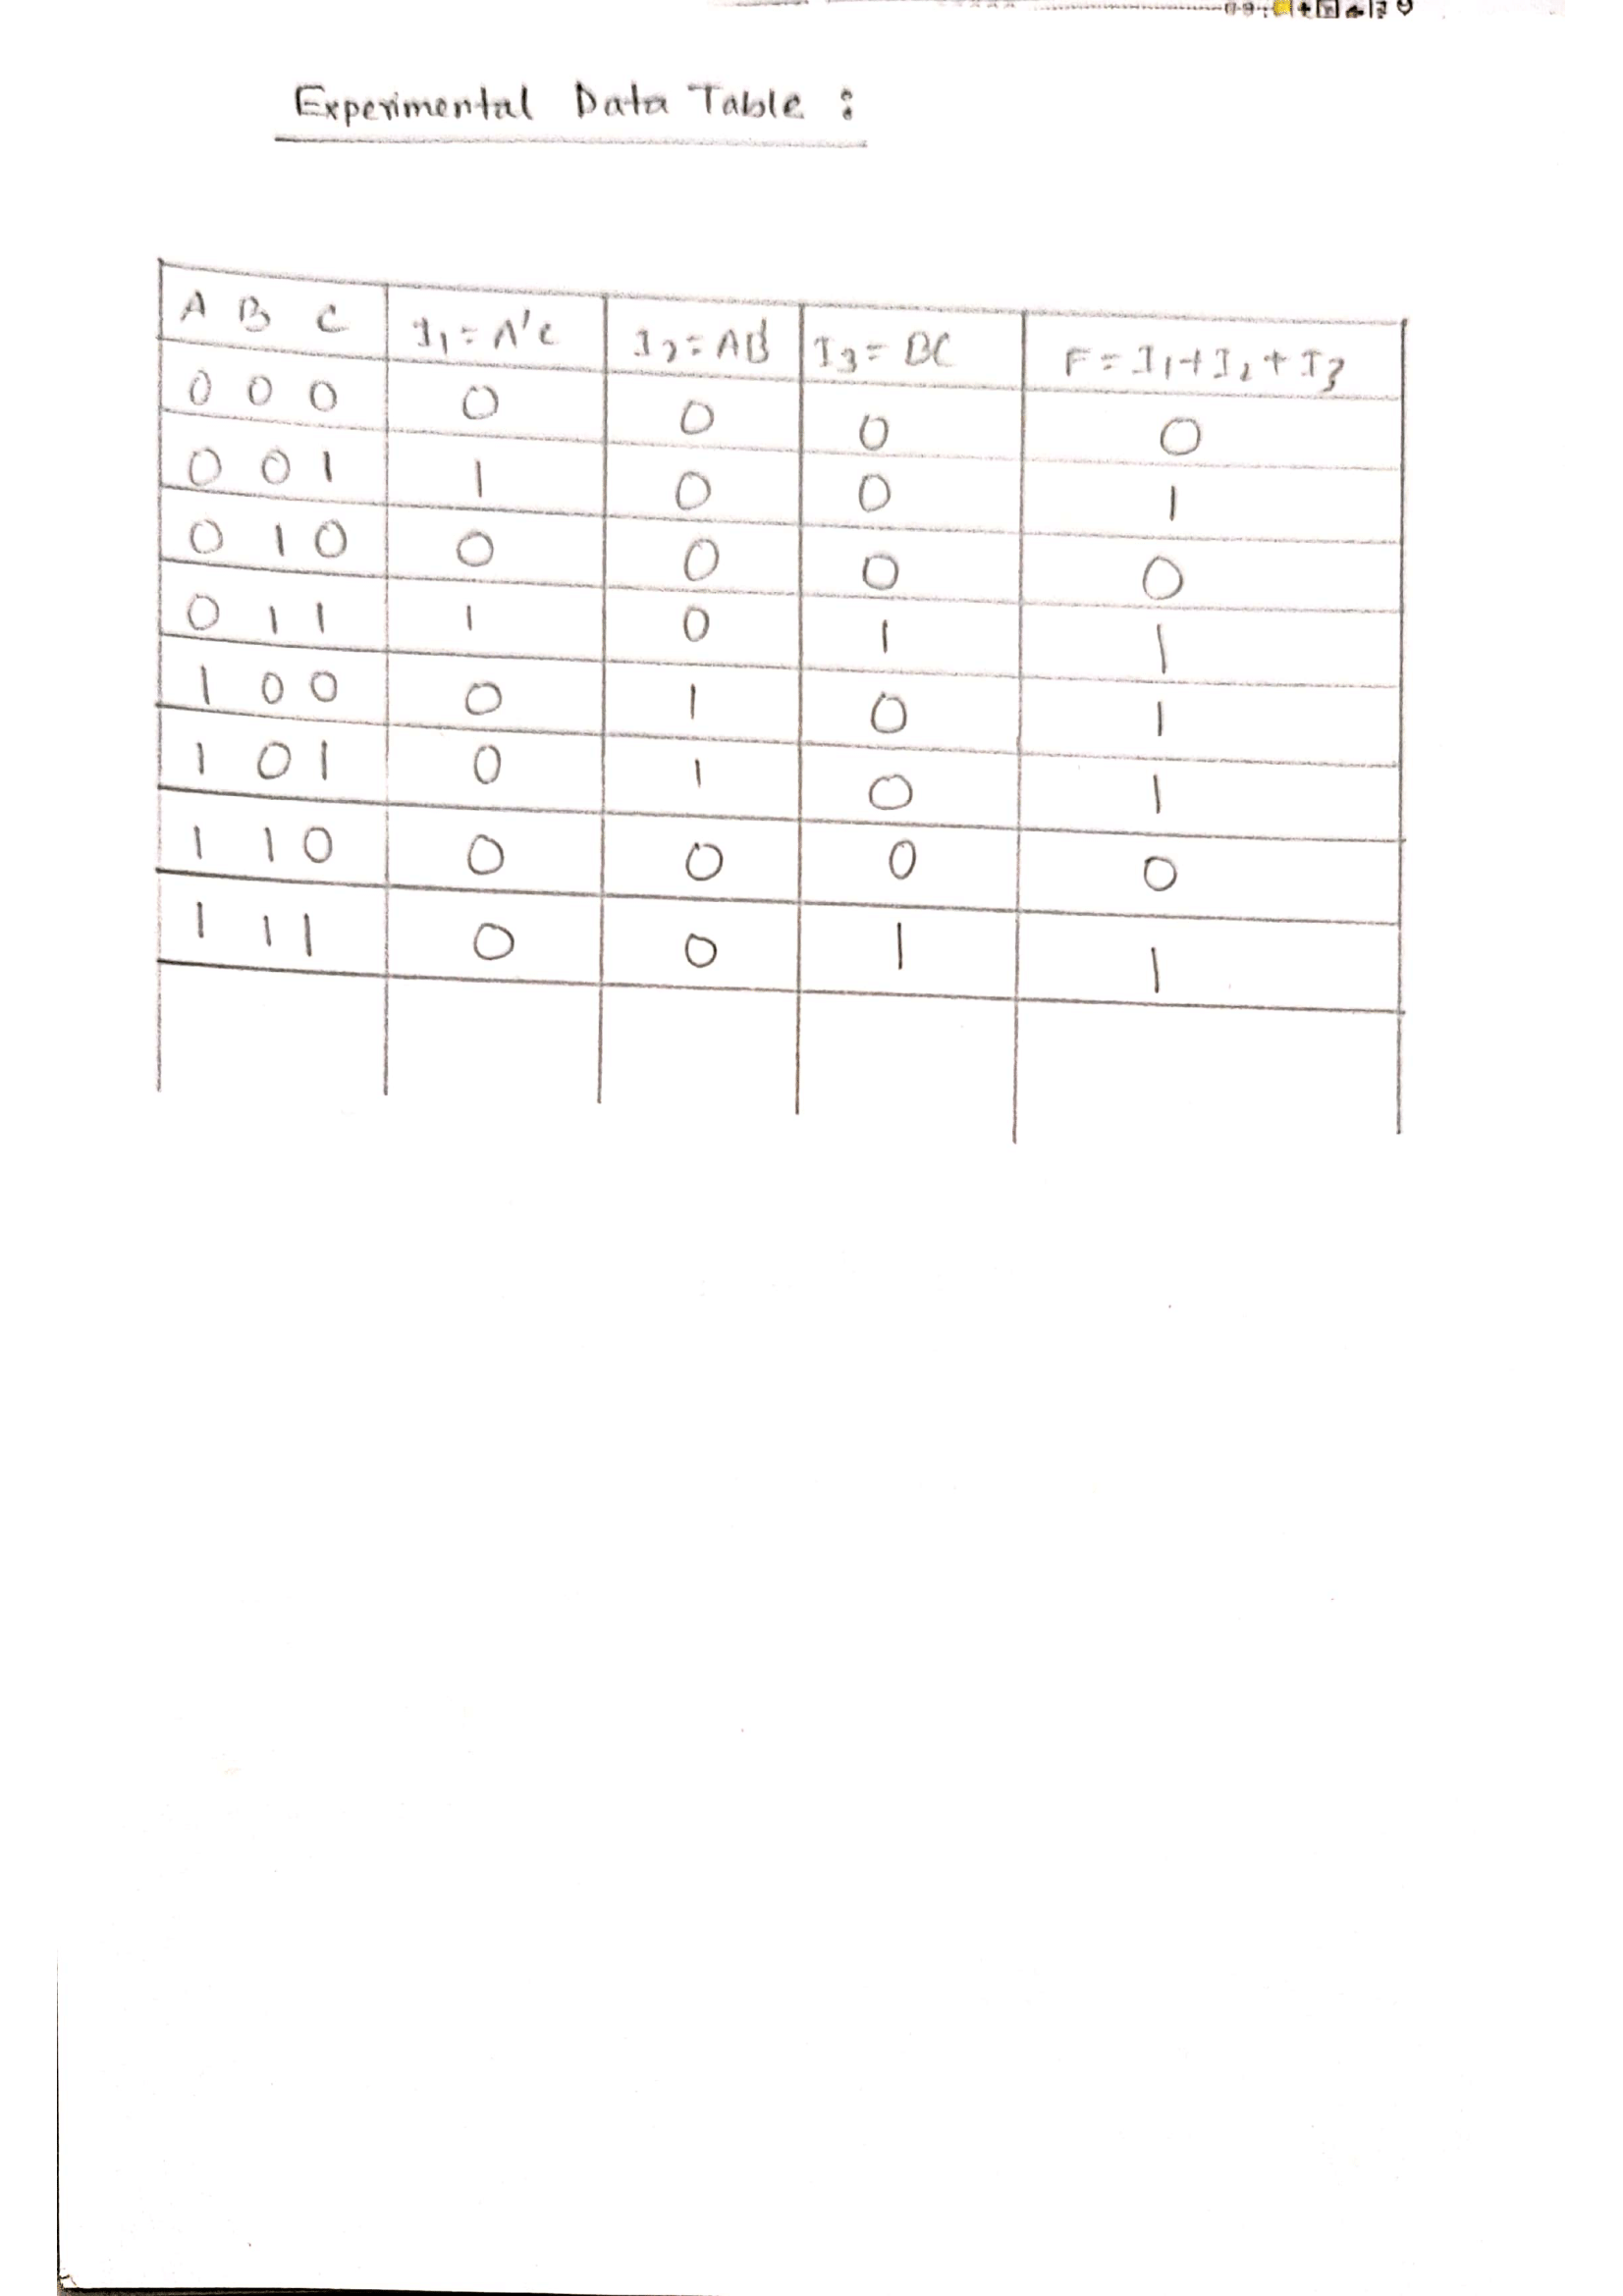 Experimental Data Table :
A B C I₁ = A'C I₂ = AB' I₃ = BC F = I₁ + I₂ + I₃
0 0 0 0 0 0 0
0 0 1 1 0 0 1
0 1 0 0 0 0 0
0 1 1 1 0 1 1
1 0 0 0 1 0 1
1 0 1 0 1 0 1
1 1 0 0 0 0 0
1 1 1 0 0 1 1